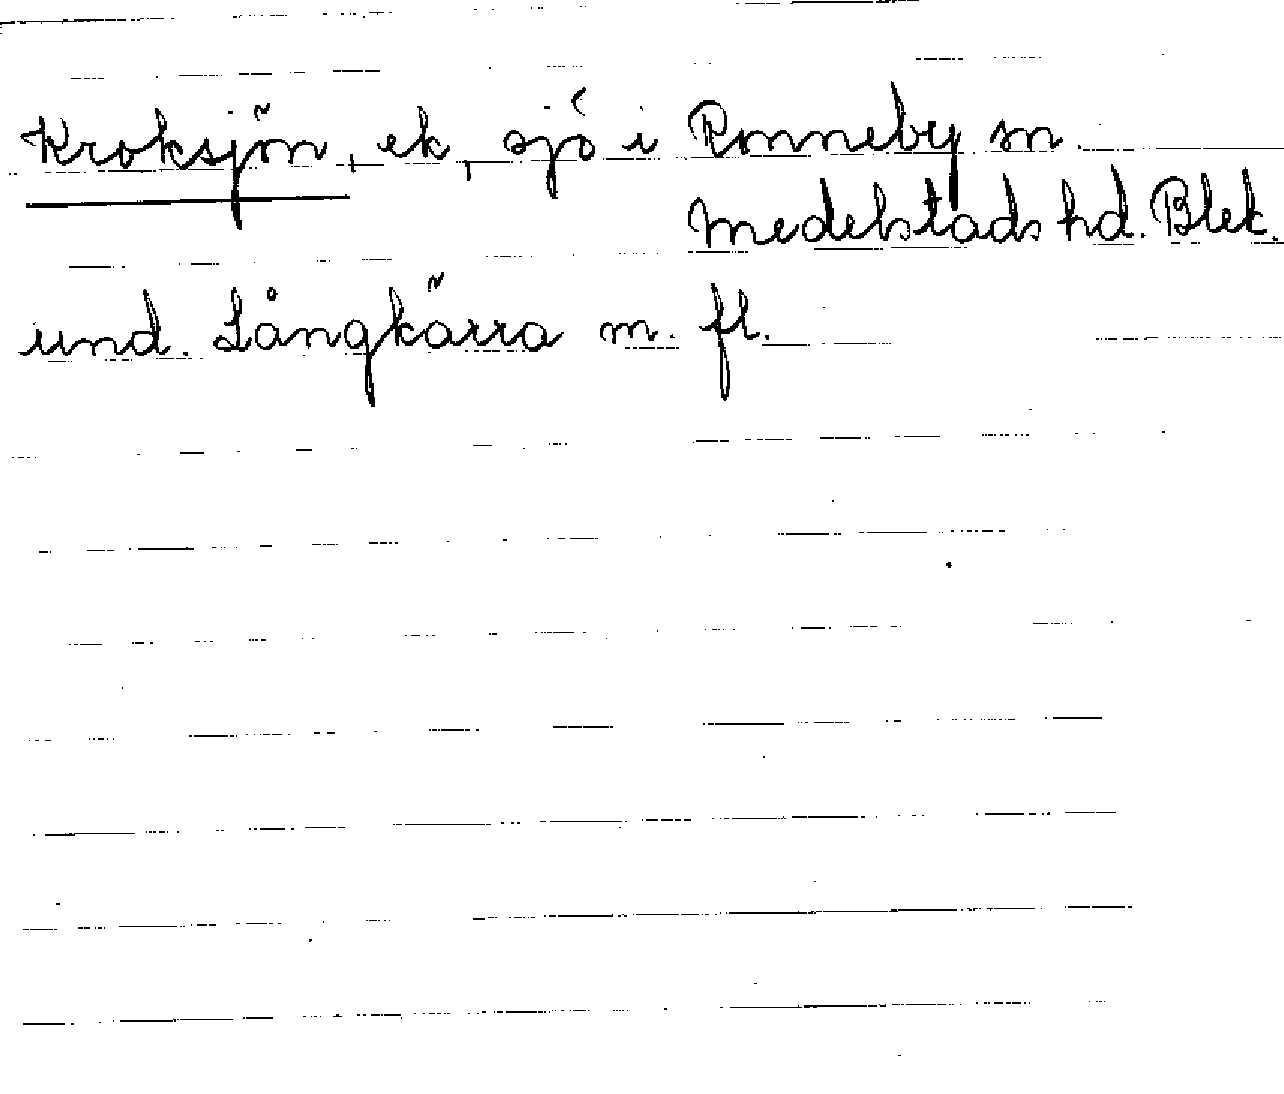 Kroksjön, ek, sjö i Ronneby sn
Medelstads hd. Blek.
und. Långkärra m. fl.